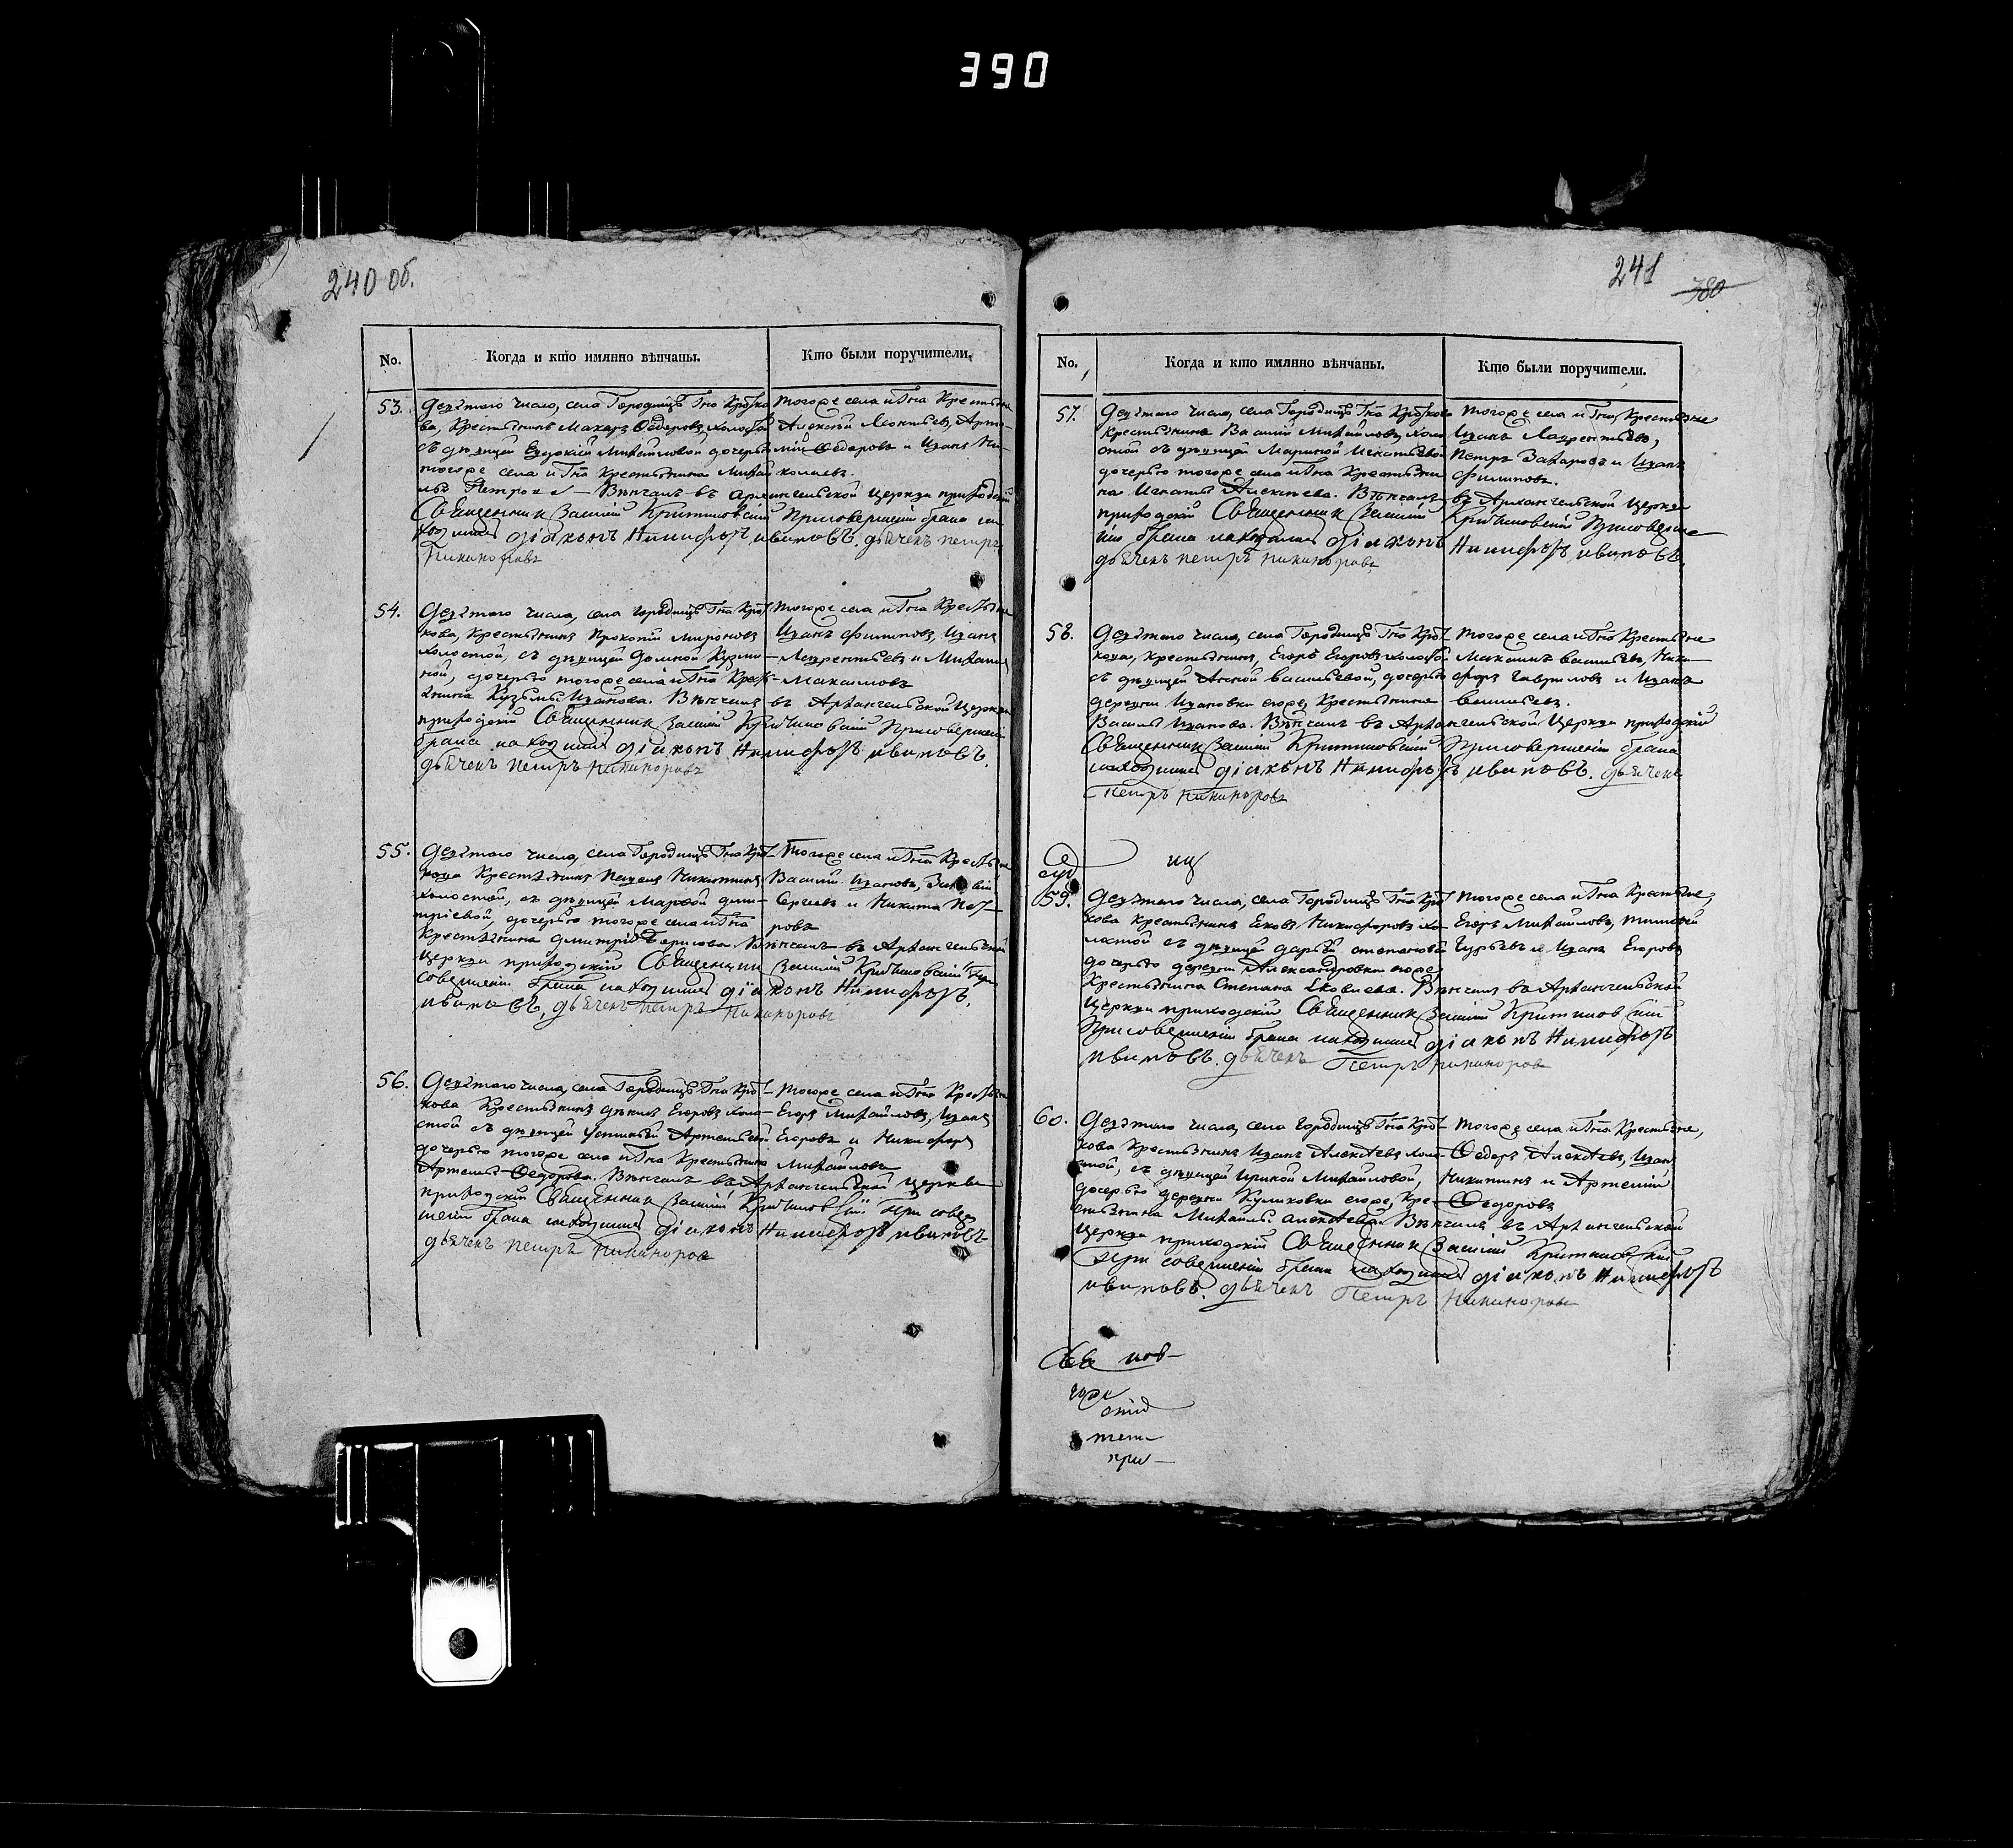 390
240 об.
No. Когда и кто имянно вѣнчаны. Кто были поручители.
53. Девятого число, села Городищъ Гна Крот-
ва, Крестьянинъ Макаръ Ѳедоровъ холостой
съ дѣвицей Евдокіей Михайловой дочерью
тогоже села и Гна Крестьянина Михай
Петрова Вѣнчалъ въ Архангельской Церкви приходскій
Священникъ Василій При совершеніи брака на
ходились діаконъ Никифоръ Ивановъ. дьячекъ петръ
Никаноровъ
тогоже села и Гна Крестьяне
Алексѣй Леонтьевъ, Арте-
мій Ѳедоровъ и Иванъ Ни-
колаевъ.
54. Девятого числа, села Городищъ Гна Крот-
кова, Крестьянинъ Прокопій Мироновъ
холостой, съ дѣвицей Домной Кузми-
ной, дочерью тогоже села и Гна Кресть-
янина Кузьмы Иванова. Вѣнчалъ въ Архангельской Церкви
приходскій Священникъ Василій При совершеніи
брака находились діаконъ Никифоръ Ивановъ.
дьячекъ петръ Никаноровъ
тогоже села и Гна Крестьяне
Иванъ Филиповъ, Иванъ
Лаврентьевъ и Михаилъ
Максимовъ
55. Девятого числа, села Городищъ Гна Крот-
кова Крестьянинъ Никитинъ
холостой, съ дѣвицей Марѳой Дми-
тріевой, дочерью тогоже села и Гна
Крестьянина Дмитрія Вѣнчалъ въ Архангельской
Церкви приходскій Священникъ Василій При
совершеніи брака находились діаконъ Никифоръ
Ивановъ, дьячекъ петръ Никаноровъ
Тогоже села и Гна Крестьяне
Василій Ивановъ, Зиновій
Сергѣевъ и Никита Пет-
ровъ
56. Девятого числа, села Городищъ Гна Крот-
кова Крестьянинъ Егоровъ холо-
стой съ дѣвицей Устиньей Артемьевой
дочерью тогоже села и Гна Крестьянина
Артемья Ѳедорова. Вѣнчалъ въ Архангельской церкви
приходскій Священникъ Василій При совер-
шеніи брака находились діаконъ Никифоръ Ивановъ
дьячекъ петръ Никаноровъ
тогоже села и Гна Крестьяне
Егоръ Михайловъ, Иванъ
Егоровъ и Никифоръ
Михайловъ
241
380
No. Когда и кто имянно вѣнчаны. Кто были поручители.
57. Девятого числа, села Городищъ Гна Кроткова
Крестьянинъ Василій Михайловъ, холо
стой съ дѣвицей Мариной Игнатьевой
дочерью тогоже села и Гна Крестьяни
на Игнатья Алексѣева. Вѣнчалъ въ Архангельской Церкви
приходскій Священникъ Василій При совершe
ніи брака находились діаконъ Никифоръ Ивановъ.
дьячекъ петръ Никаноровъ
тогоже села и Гна Крестьяне
Иванъ Лаврентьевъ,
Петръ Захаровъ и Иванъ
Филиповъ.
58. Девятого числа, села Городищъ Гна Крот-
кова, Крестьянинъ, Егоръ Егоровъ холостой
съ дѣвицей Анной Васильевой, дочерью
деревни Ивановки егоже, Крестьянина
Василья Иванова. Вѣнчалъ въ Архангельской Церкви приходскій
Священникъ Василій При совершеніи брака
находились діаконъ Никифоръ Ивановъ. дьячекъ
Петръ Никаноровъ
тогоже села и Гна Крестьяне
Максимъ Васильевъ, Ники-
форъ Гавриловъ и Иванъ
Васильевъ.
59. Девятого числа, села Городищъ Гна Крот-
кова Крестьянинъ Яковъ Никифоровъ хо-
лостой съ дѣвицей Дарьей Степановой
дочерью деревни Александровки егоже,
Крестьянина Степана Яковлева. Вѣнчалъ въ Архангельской
Церкви приходскій Священникъ Василій
При совершеніи брака находились діаконъ Никифоръ
Ивановъ. дьячекъ Петръ Никаноровъ
тогоже села и Гна Крестьяне,
Егоръ Михайловъ, Тимофей
Гурьевъ и Иванъ Егоровъ
60. Девятого числа, села Городищъ Гна Крот-
кова Крестьянинъ Иванъ Алексѣевъ холо-
стой, съ дѣвицей Ириной Михайловой,
дочерью деревни Куликовки егоже, Кре-
стьянина Михайлы Алексѣева. Вѣнчалъ въ Архангельской
Церкви приходскій Священникъ Василій
При совершеніи брака находились діаконъ Никифоръ
Ивановъ. дьячекъ Петръ Никаноровъ
тогоже села и Гна Крестьяне,
Ѳедоръ Алексѣевъ, Иванъ
Никитинъ и Артемій
Ѳедоровъ